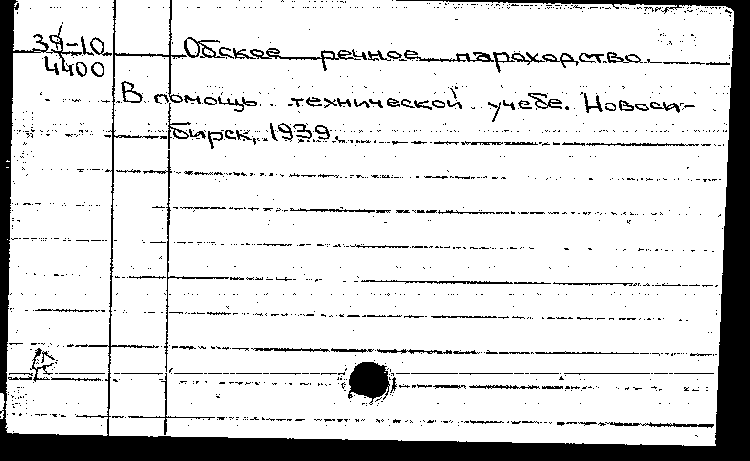 39-10
4400
Обское речное пароходство.
В помощь технической учебе. Новоси-
бирск, 1939.